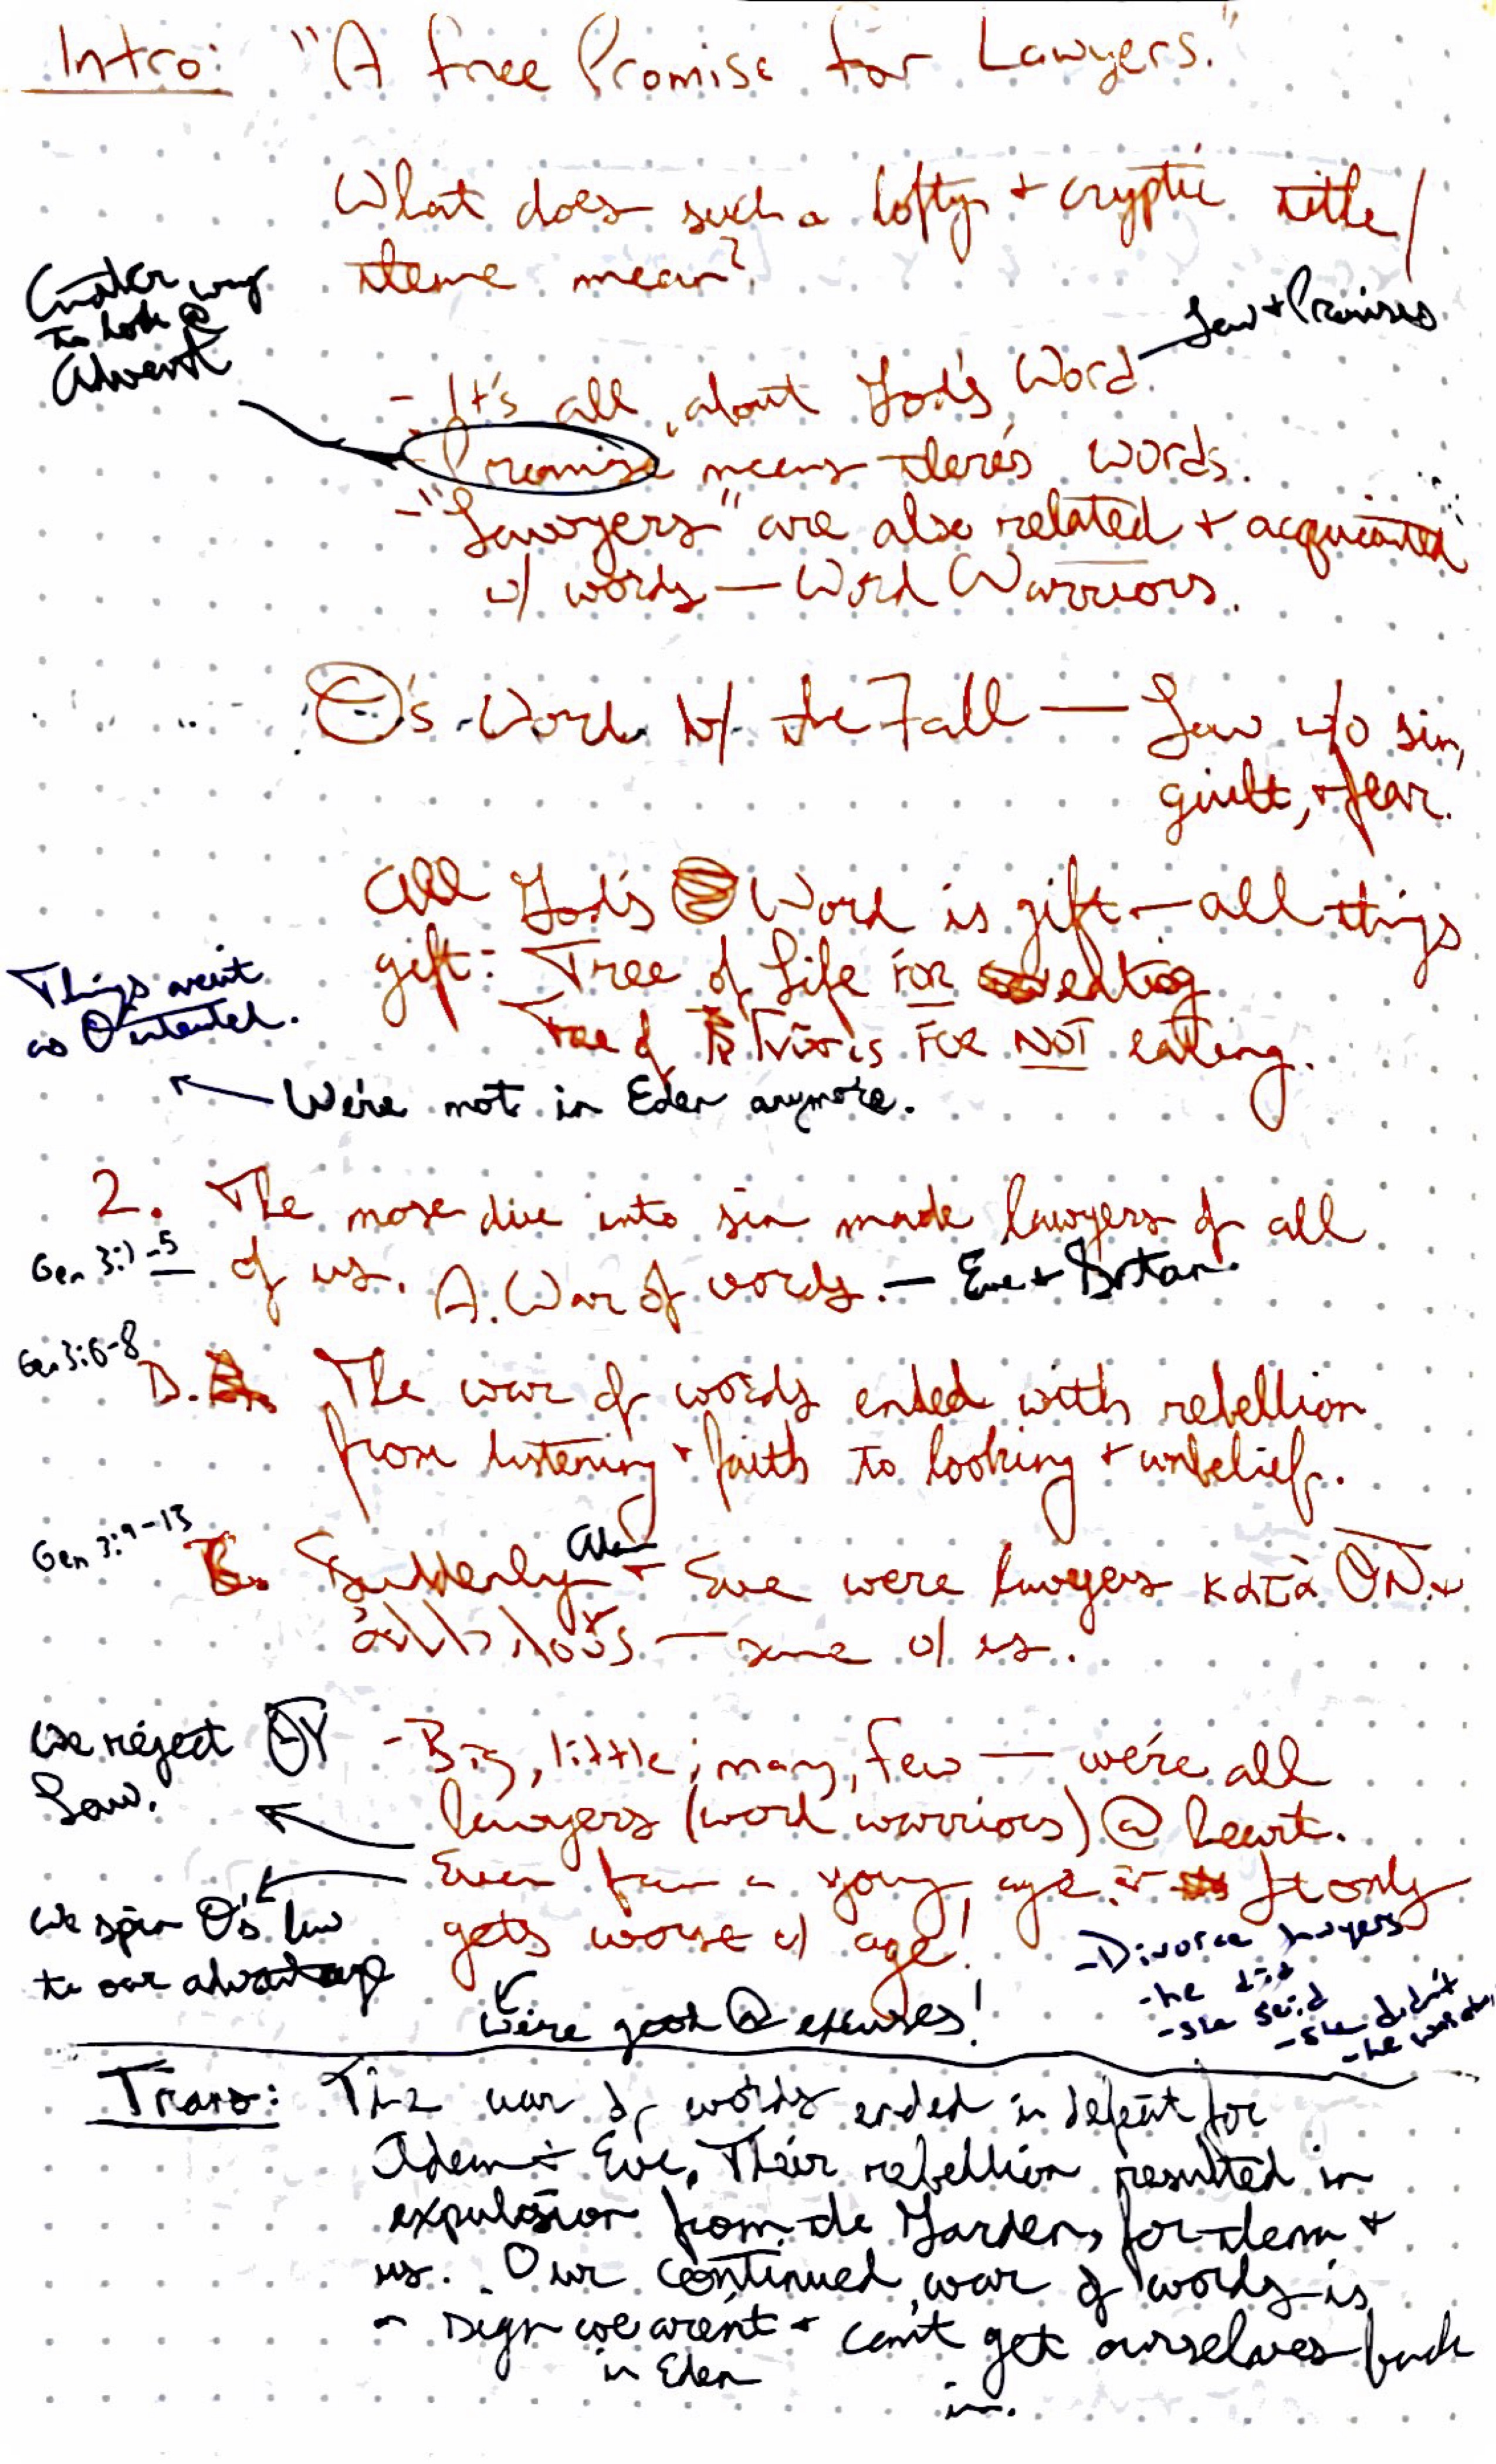 Intro: "A Free Promise for Lawyers."
What does such a lofty + cryptic title/
theme mean?
Another way
to look @
Advent
Law + Promises
- It's all about God's Word.
- Promise means there's words.
- "Lawyers" are also related + acquainted
w/ words — Word Warriors.
Θ's Word b/ the Fall — Law w/o sin,
guilt, + fear.
All God's Word is gift — all things
gift: Tree of Life FOR eating
Tree of is FOR NOT eating.
Things aren't
as Θ intended.
We're not in Eden anymore.
2. The nose dive into sin made lawyers of all
Gen 3:1-5
of us. A. War of words. — Eve + Satan
Gen 3:6-8
B. The war of words ended with rebellion
from listening + faith to looking + unbelief.
Gen 3:9-13
Suddenly Adam + Eve were lawyers κατὰ ΘΝ +
— same w/ us.
We reject ΘΥ
Law.
- Big, little, many, few — we're all
lawyers (word warriors) @ heart.
Even from a young age. It only
gets worse w/ age!
We spin Θ's law
to our advantage
We're good @ excuses!
- Divorce lawyers
- he did
- she said
- she didn't
- he
Trans: The war of words ended in defeat for
Adam + Eve. Their rebellion resulted in
expulsion from the Garden, for them +
us. Our continued war of words is
a sign we aren't + can't get ourselves back
in Eden
in.